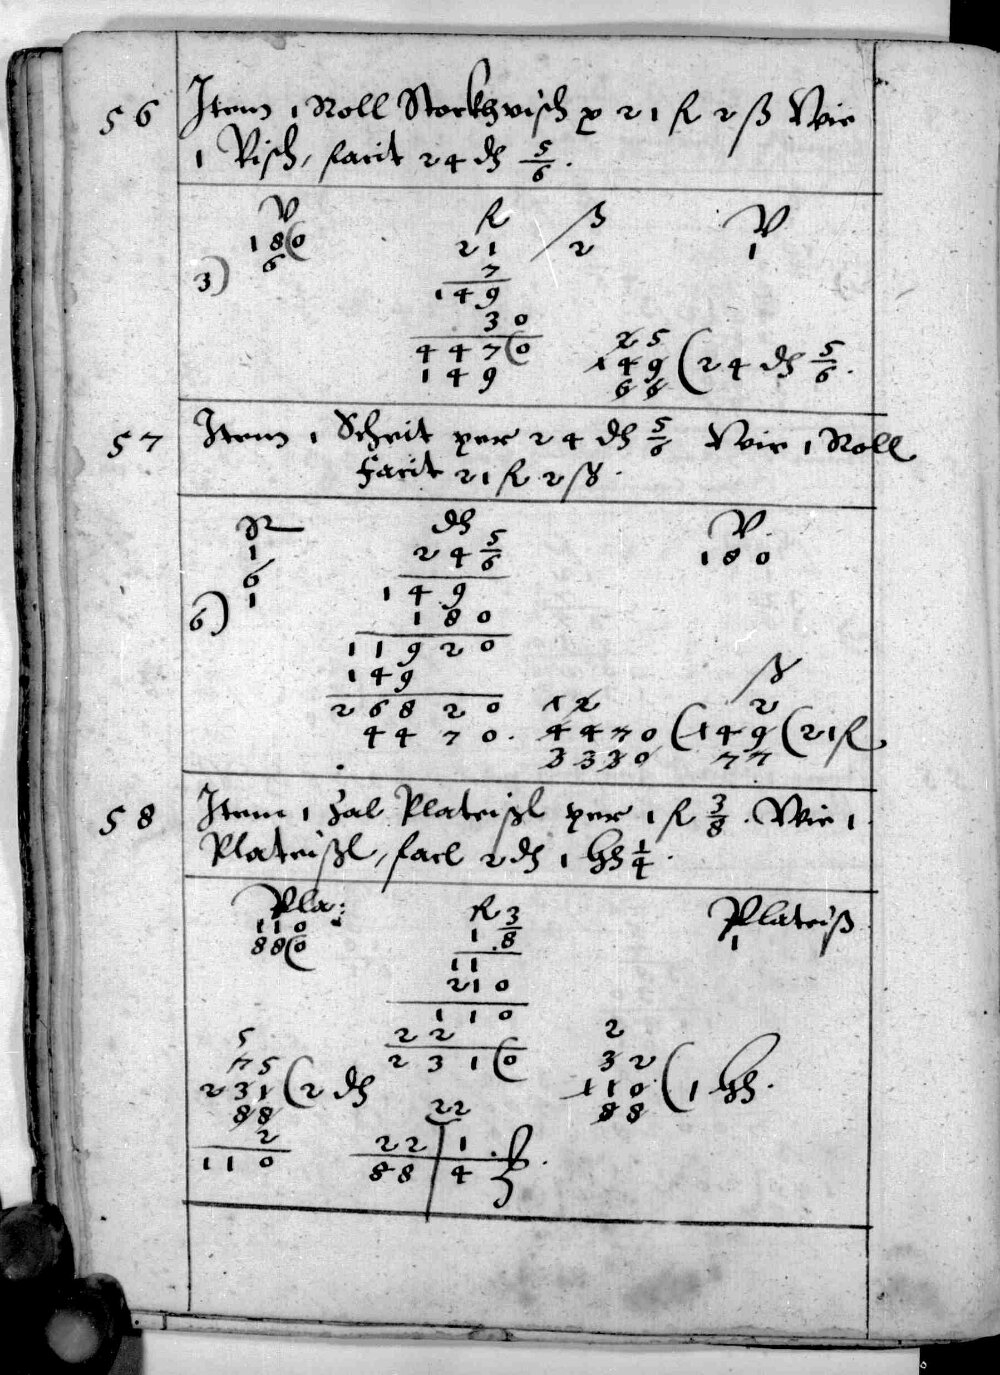 56 Item 1 Roll Stockhvisch p 21 fl 2 ß Wie
1 Visch, facit 24 dh 5/6.
V fl ß V
18(0 21 / 2 1
6 7
3) 149
30
447(0 25
149 149 (24 dh 5/6.
66
57 Item 1 Scheit per 24 dh 5/6 Wie 1 Roll
Facit 21 fl 2 ß.
R dh V.
1 24 5/6 180
6
6) 1 149
180
11920
149 ß
26820 12 2
4470. 4470 (149 (21 fl
3330 77
58 Item 1 Zal Plateißl per 1 fl 3/8. Wie 1
Plateißl, facl 2 dh 1 hh 1/4.
Pla: fl Plateiß
110 1 3/8 1
88(0 11
210
110
5 22 2
75 231(0 32
231 (2 dh 110 (1 hh.
88 22 88
2 22 1
110 88 4